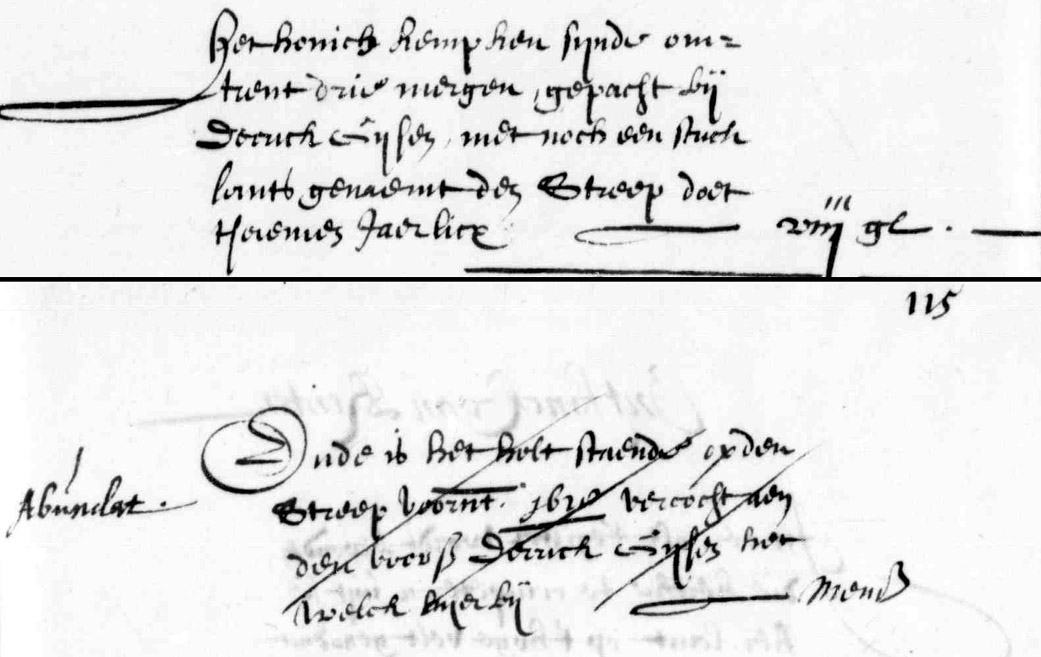 Het honich kempken sijnde om=
trent drie mergen, gepacht bij
Derrick Gijsen, met noch een stuck
lants genaemt den Streep doet
tsaemen Jaerlicx viij gl.
115
Ende is het holt staende op den
Abundat.
Streep voornt. 1610 vercocht aen
den voorß Derrick Gijsen het
welck hijer bij Memor